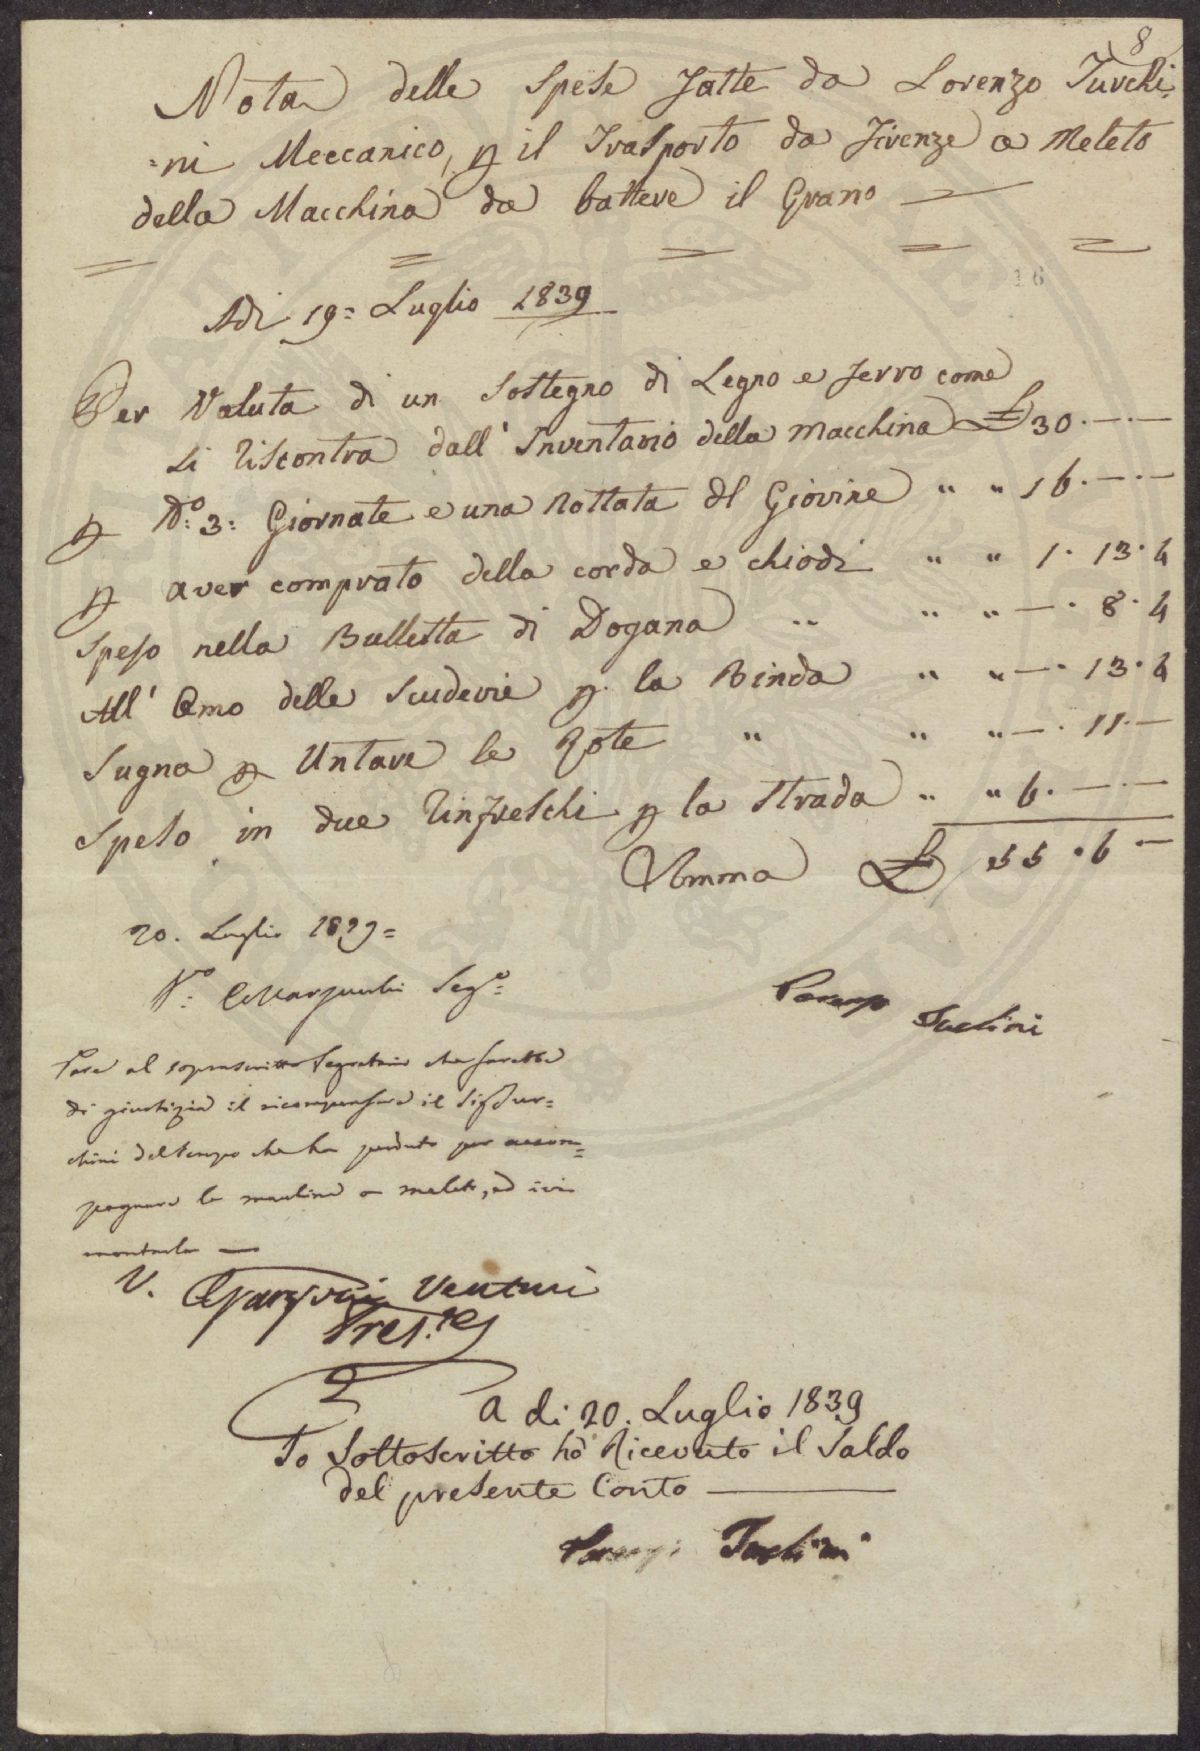 8
Nota delle Spese fatte da Lorenzo Turchi-
=ni Meccanico, p il Trasporto da Firenze a Meleto
della Macchina da battere il Grano
16
Adi 19= Luglio 1839
Per Valuta di un Sostegno di Legno e ferro come
si riscontra dall' Inventario della macchina £ 30.—.—
p N.º 3: Giornate e una Nottata dl Giovine " " 16.—.—
p aver comprato della corda e chiodi " " 1.13.4
Speso nella Bulletta di Dogana " " " —.8.4
All' Omo delle Scuderie p. la Binda " " —.13.4
Sugna p Untare le Rote " " " —.11.—
Speso in due Rinfreschi p la Strada " " 6.—.—
Somma £ 55.6—
20. Luglio 1839=
V.º Segº=
Lorenzo Turchini
Pare al soprascritto Segretario che sarebbe
di giustizia il ricompensare il Sig Tur=
chini del tempo che ha perduto per accom=
pagnare la macchina a Meleto, ed ivi
montarla —
V. Venturi
Pres.te
A di 20. Luglio 1839
Io Sottoscritto hò Ricevuto il Saldo
del presente Conto
Lorenzo Turchini